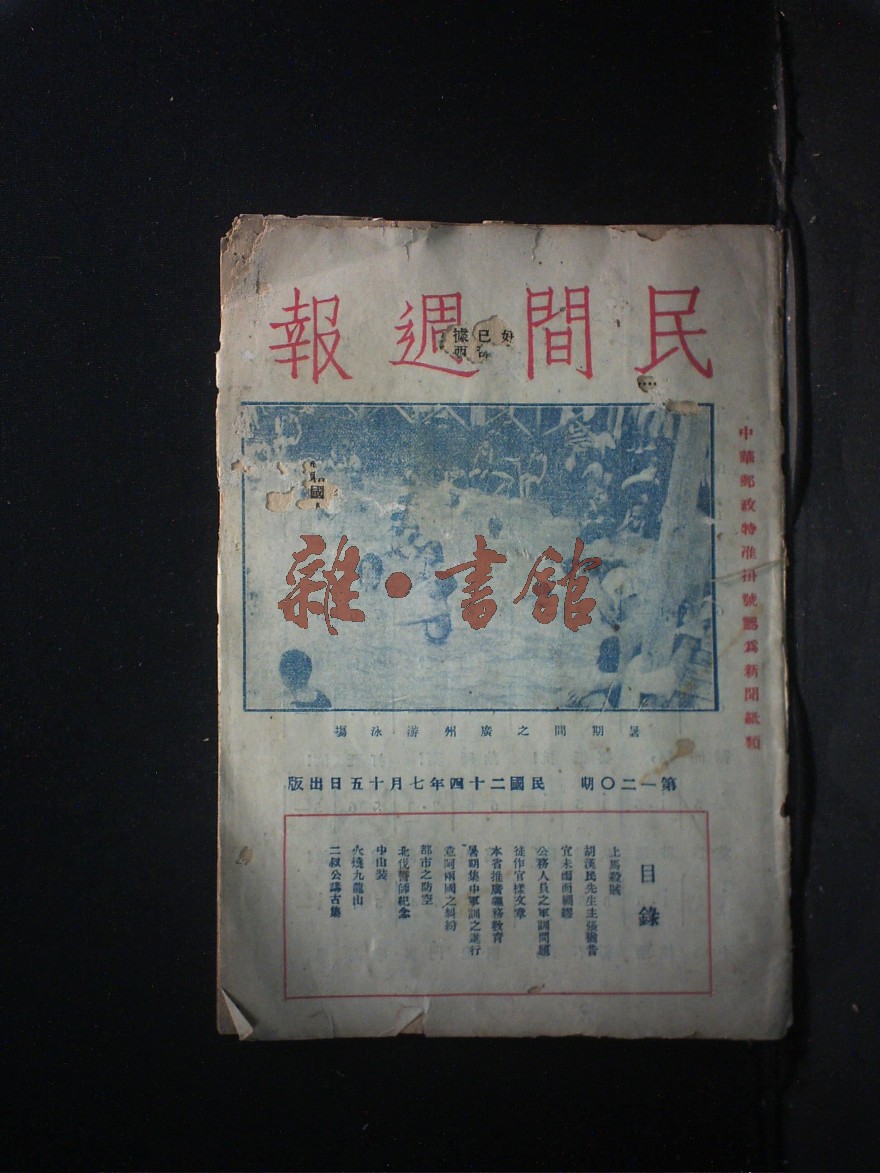 民間週報
好已據
國
中華郵政特准掛號認為新聞紙類
雜·書館
暑期間之廣州游泳場
第一二〇期 民國二十四年七月十五日出版
目錄
上馬殺賊
胡漢民先生主張
宜未雨而綢繆
公務人員之軍訓問題
徒作官樣文章
本省推廣義務教育
暑期集中軍訓之進行
意阿兩國之糾紛
都市之防空
北伐誓師紀念
中山裝
火燒九龍山
二叔公講古集